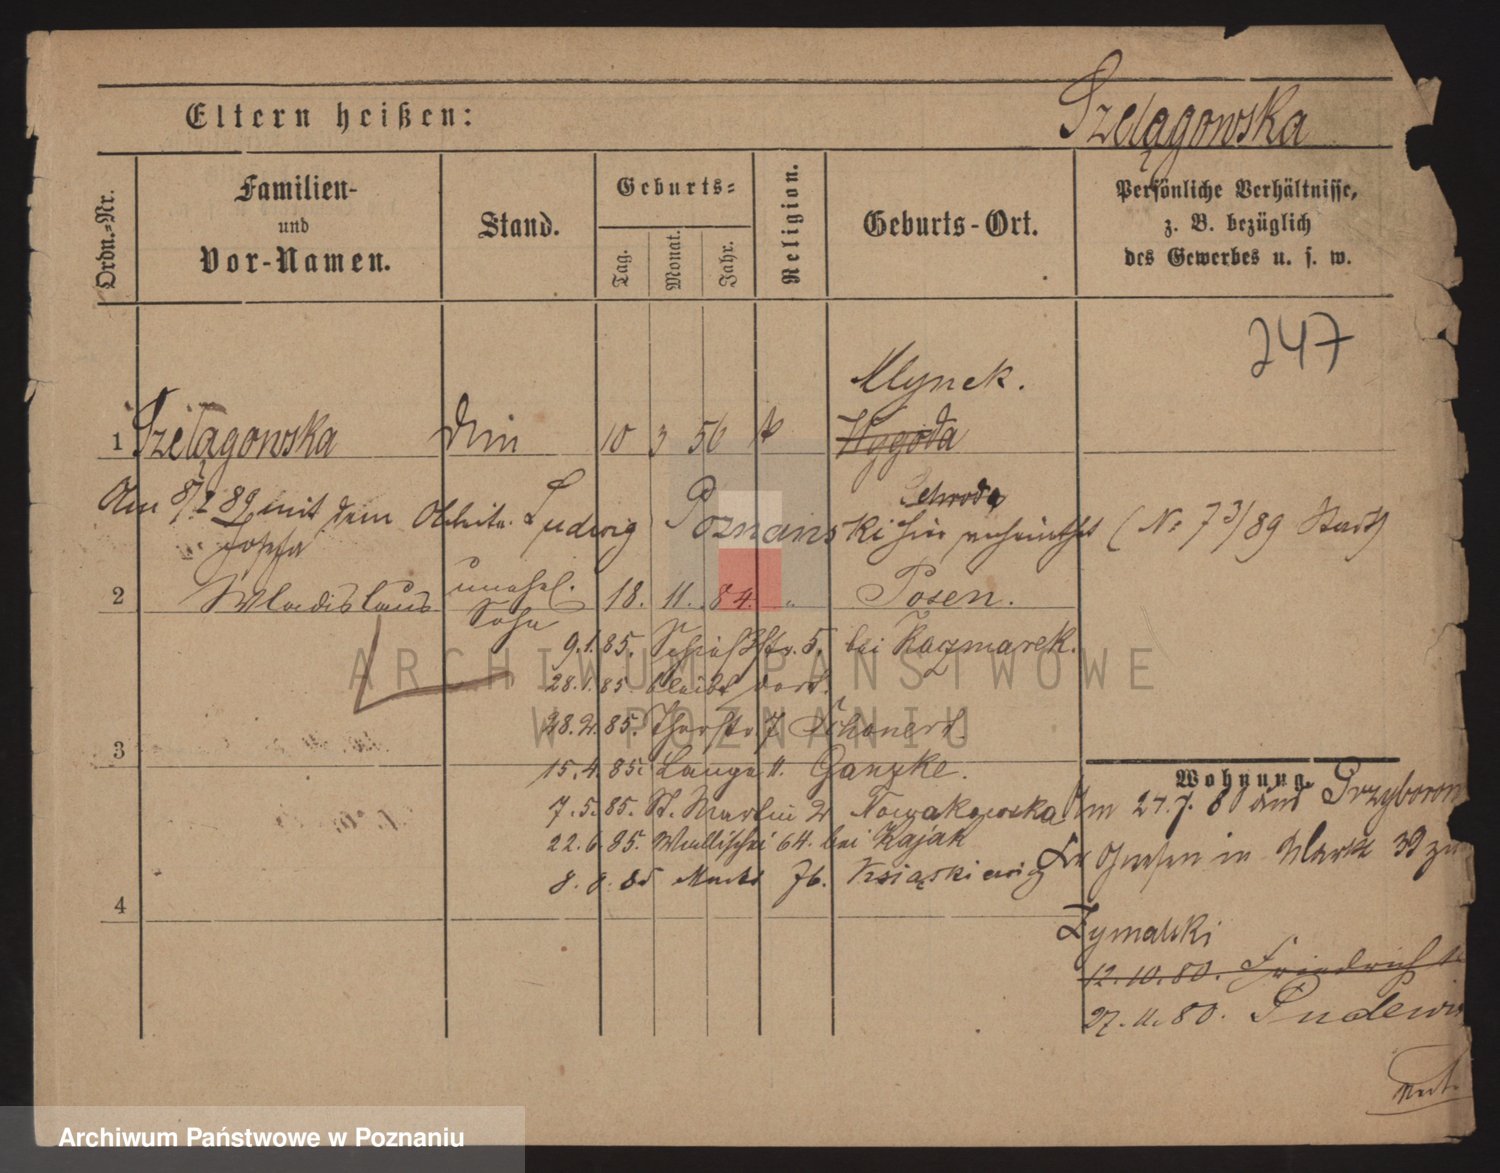 Eltern heißen:
Szelągowska
Ordn.-Nr.
Familien-
und
Vor-Namen.
Stand.
Geburts-
Tag.
Monat.
Jahr.
Religion.
Geburts-Ort.
Persönliche Verhältnisse,
z. B. bezüglich
des Gewerbes u. s. w.
247
Mlynek.
1 Szelągowska 10 3 56 k Wygoda
Schroda
Am 89 mit dem Ludwig Poznanski hier (No 73/89 Stadt)
Josefa
2 Wladislaus unehel. 18. 11. 84. " Posen.
Sohn
9.1.85. Schießstr. 5. bei Kaczmarek.
28.1.85. bleibt dort.
28.2.85. 7
3
15.4.85. Lange 11. Ganzke.
7.5.85. St. Martin 2 Nowakowska
22.6.85. Wallischei 64. bei Kajak
8.8.85 Markt 76. Książkiewicz
4
Wohnung.
Am 27.7.80 aus
Gnesen in Markt 39 zu
Zymalski
12.10.80. Friedrichst
27.11.80.
ARCHIWUM PAŃSTWOWE
W POZNANIU
Archiwum Państwowe w Poznaniu